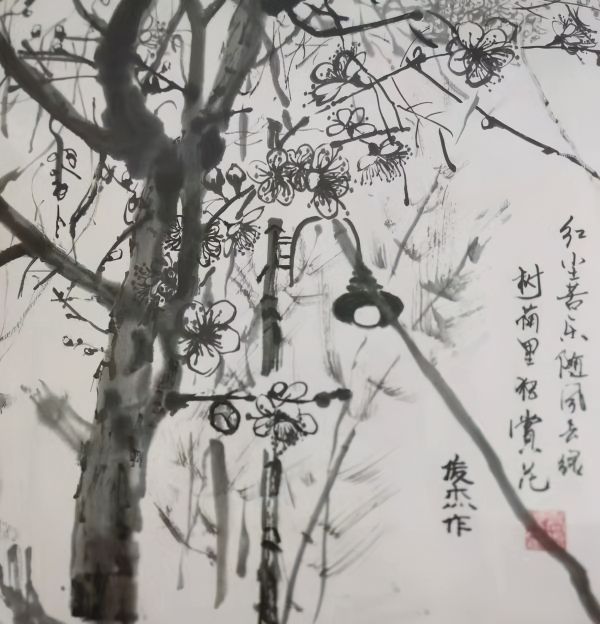 红尘苦乐随风去绿
树荫里独赏花
俊杰作